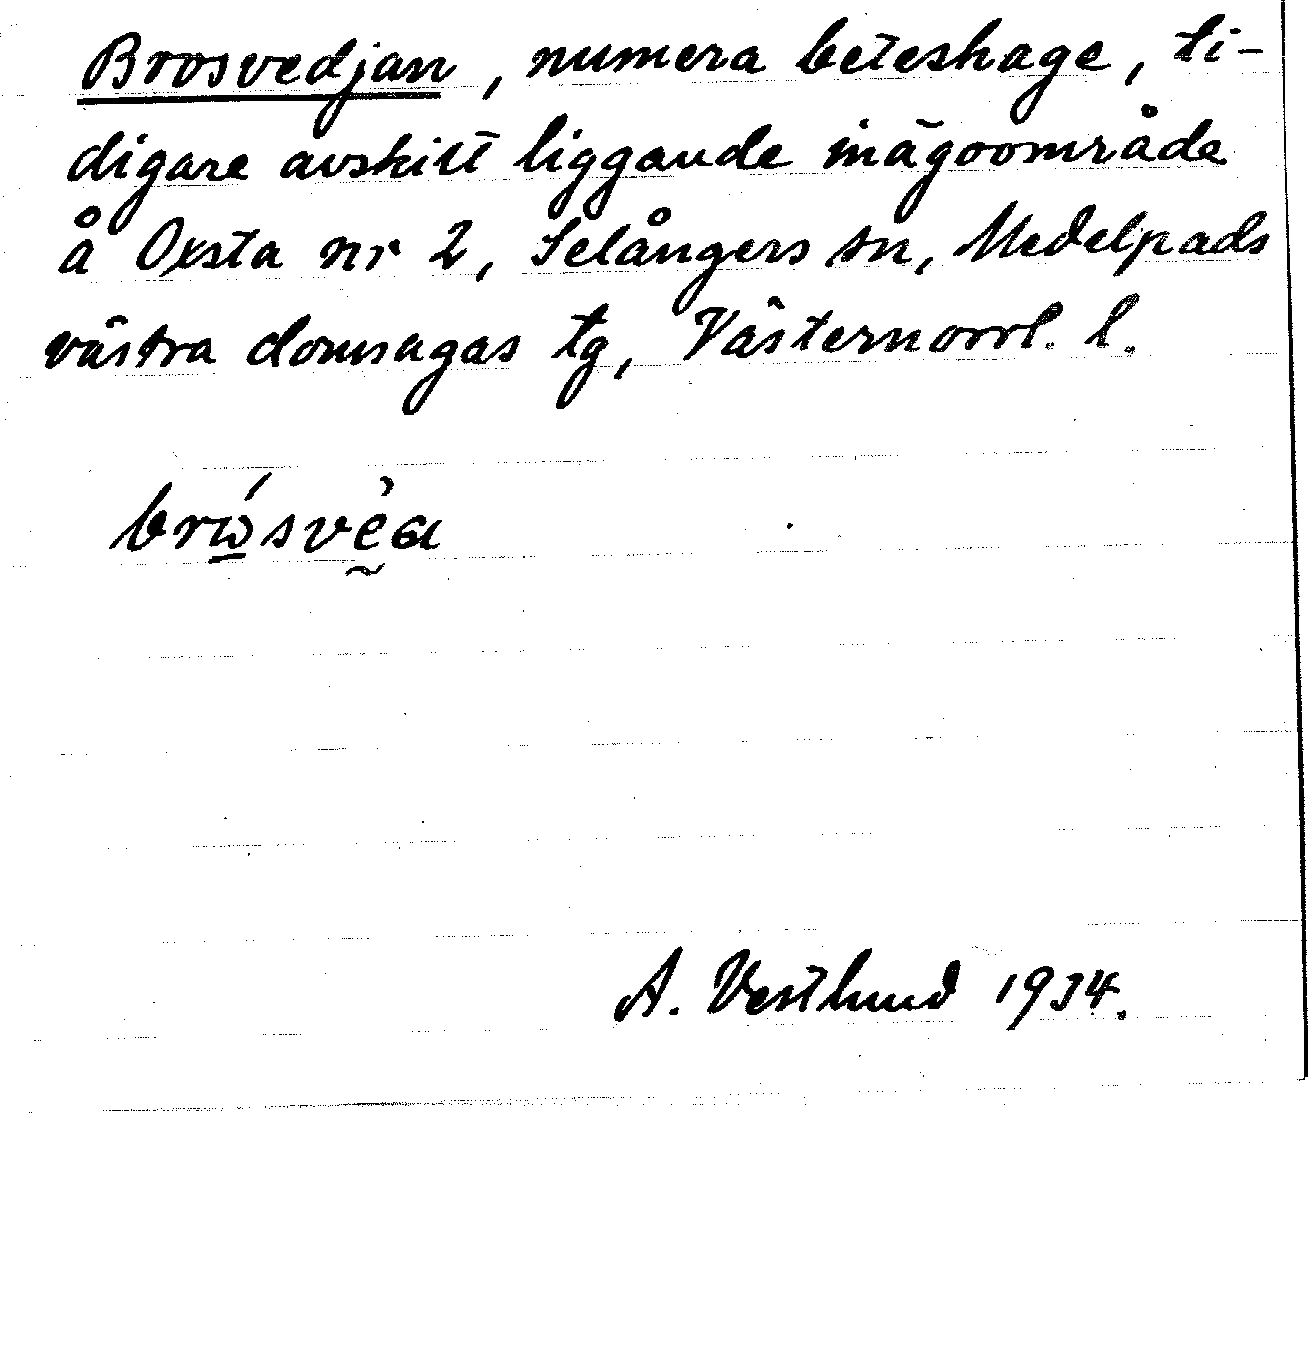 Brosvedjan, numera beteshage, ti-
digare avskilt liggande inägoområde
å Oxsta nr 2, Selångers sn, Medelpads
västra domsagas tg, Västernorrl. l.
A. Vestlund 1934.